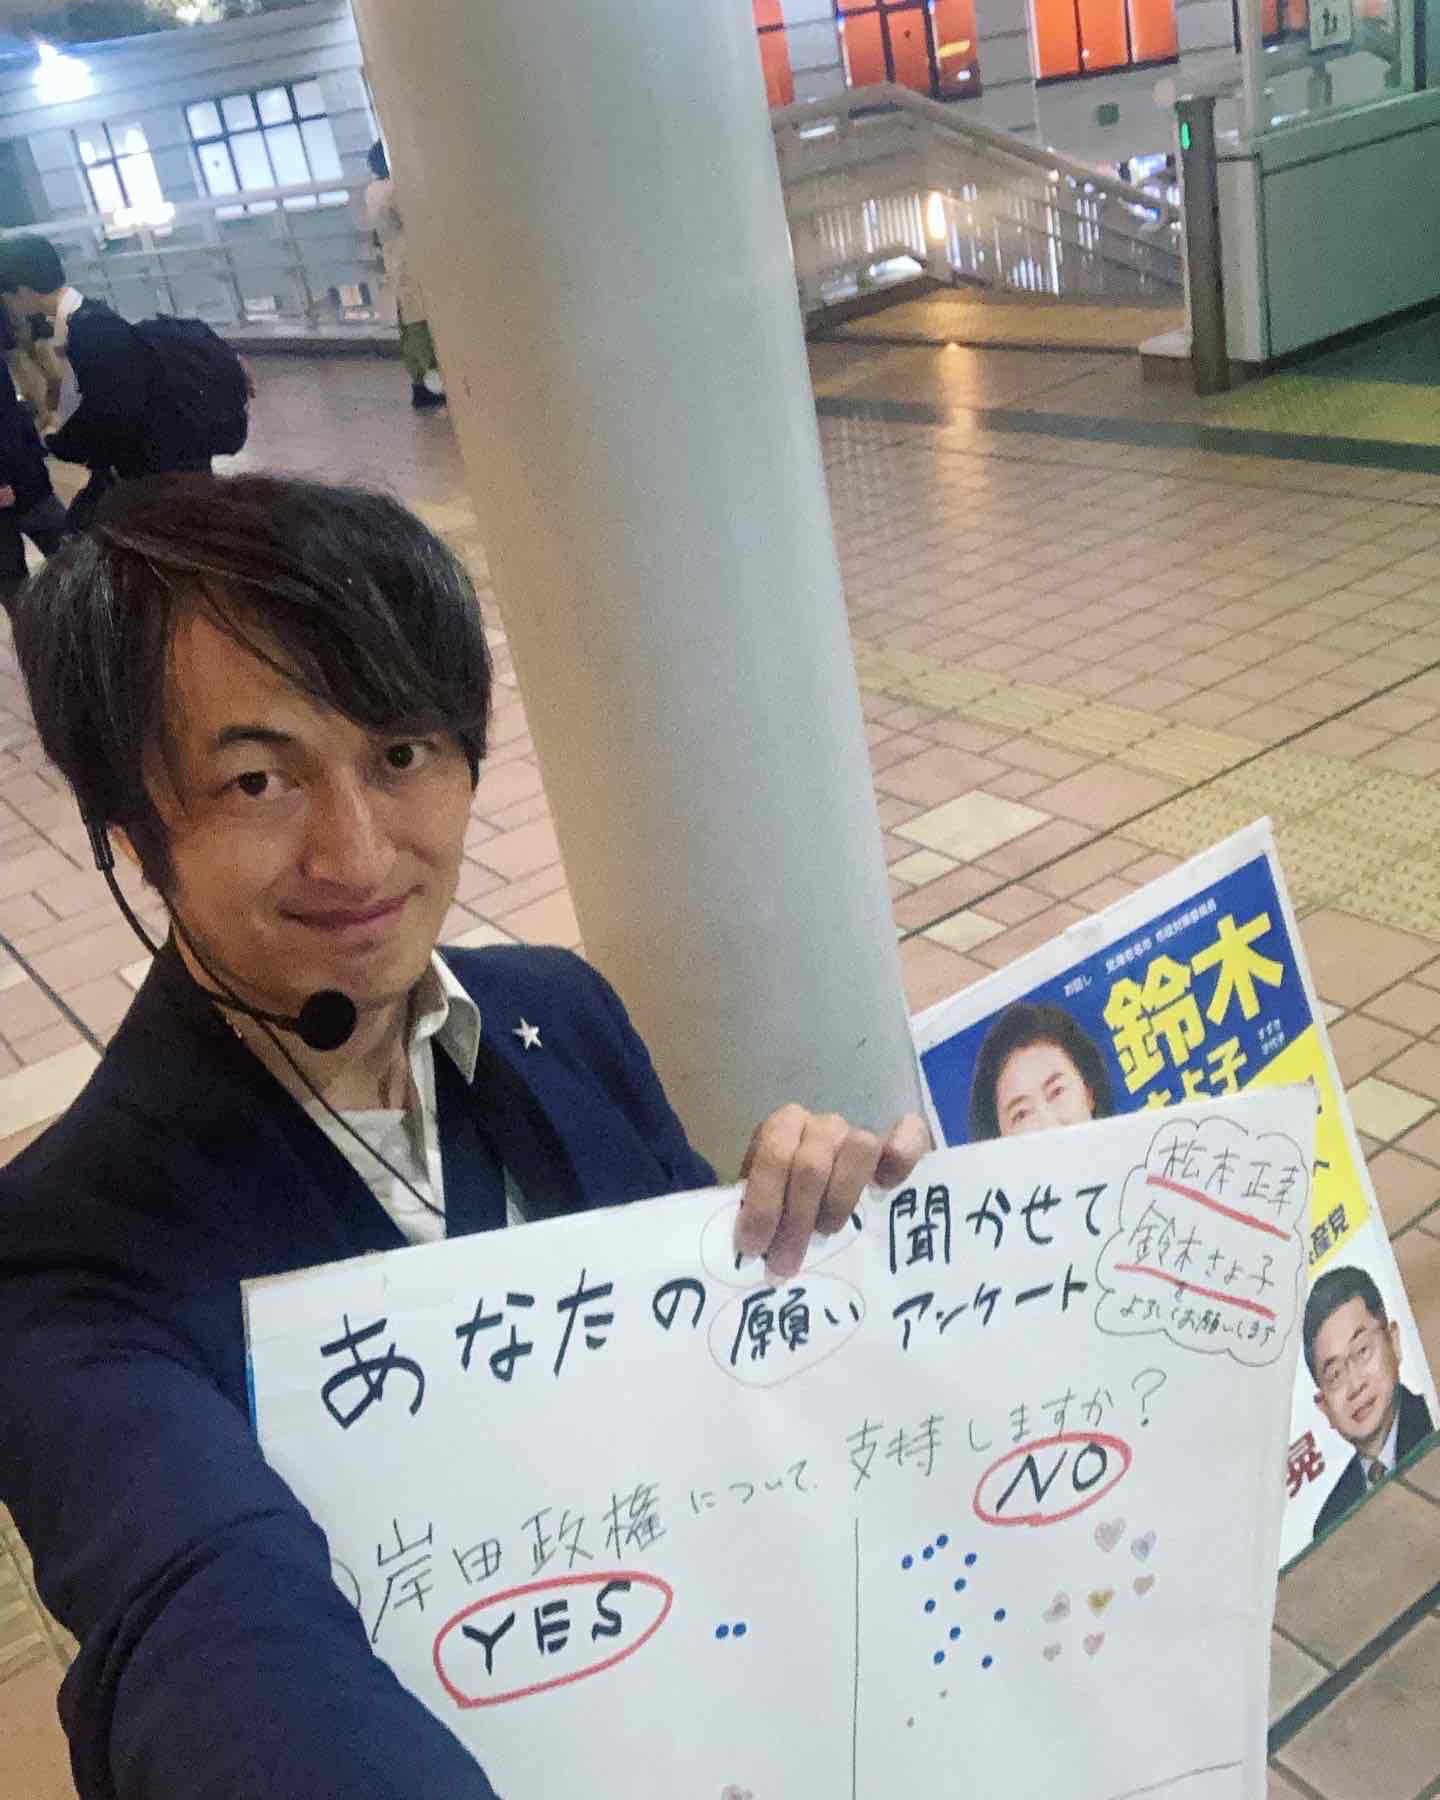 お話し 党海老名市 市政対策委員長
鈴木
さよ子
すずき
さよこ
へ
産党
晃
あなたの願い 聞かせて
アンケート
松本正幸
鈴木さよ子
を
よろしくお願いします
岸田政権について、支持しますか?
YES
NO